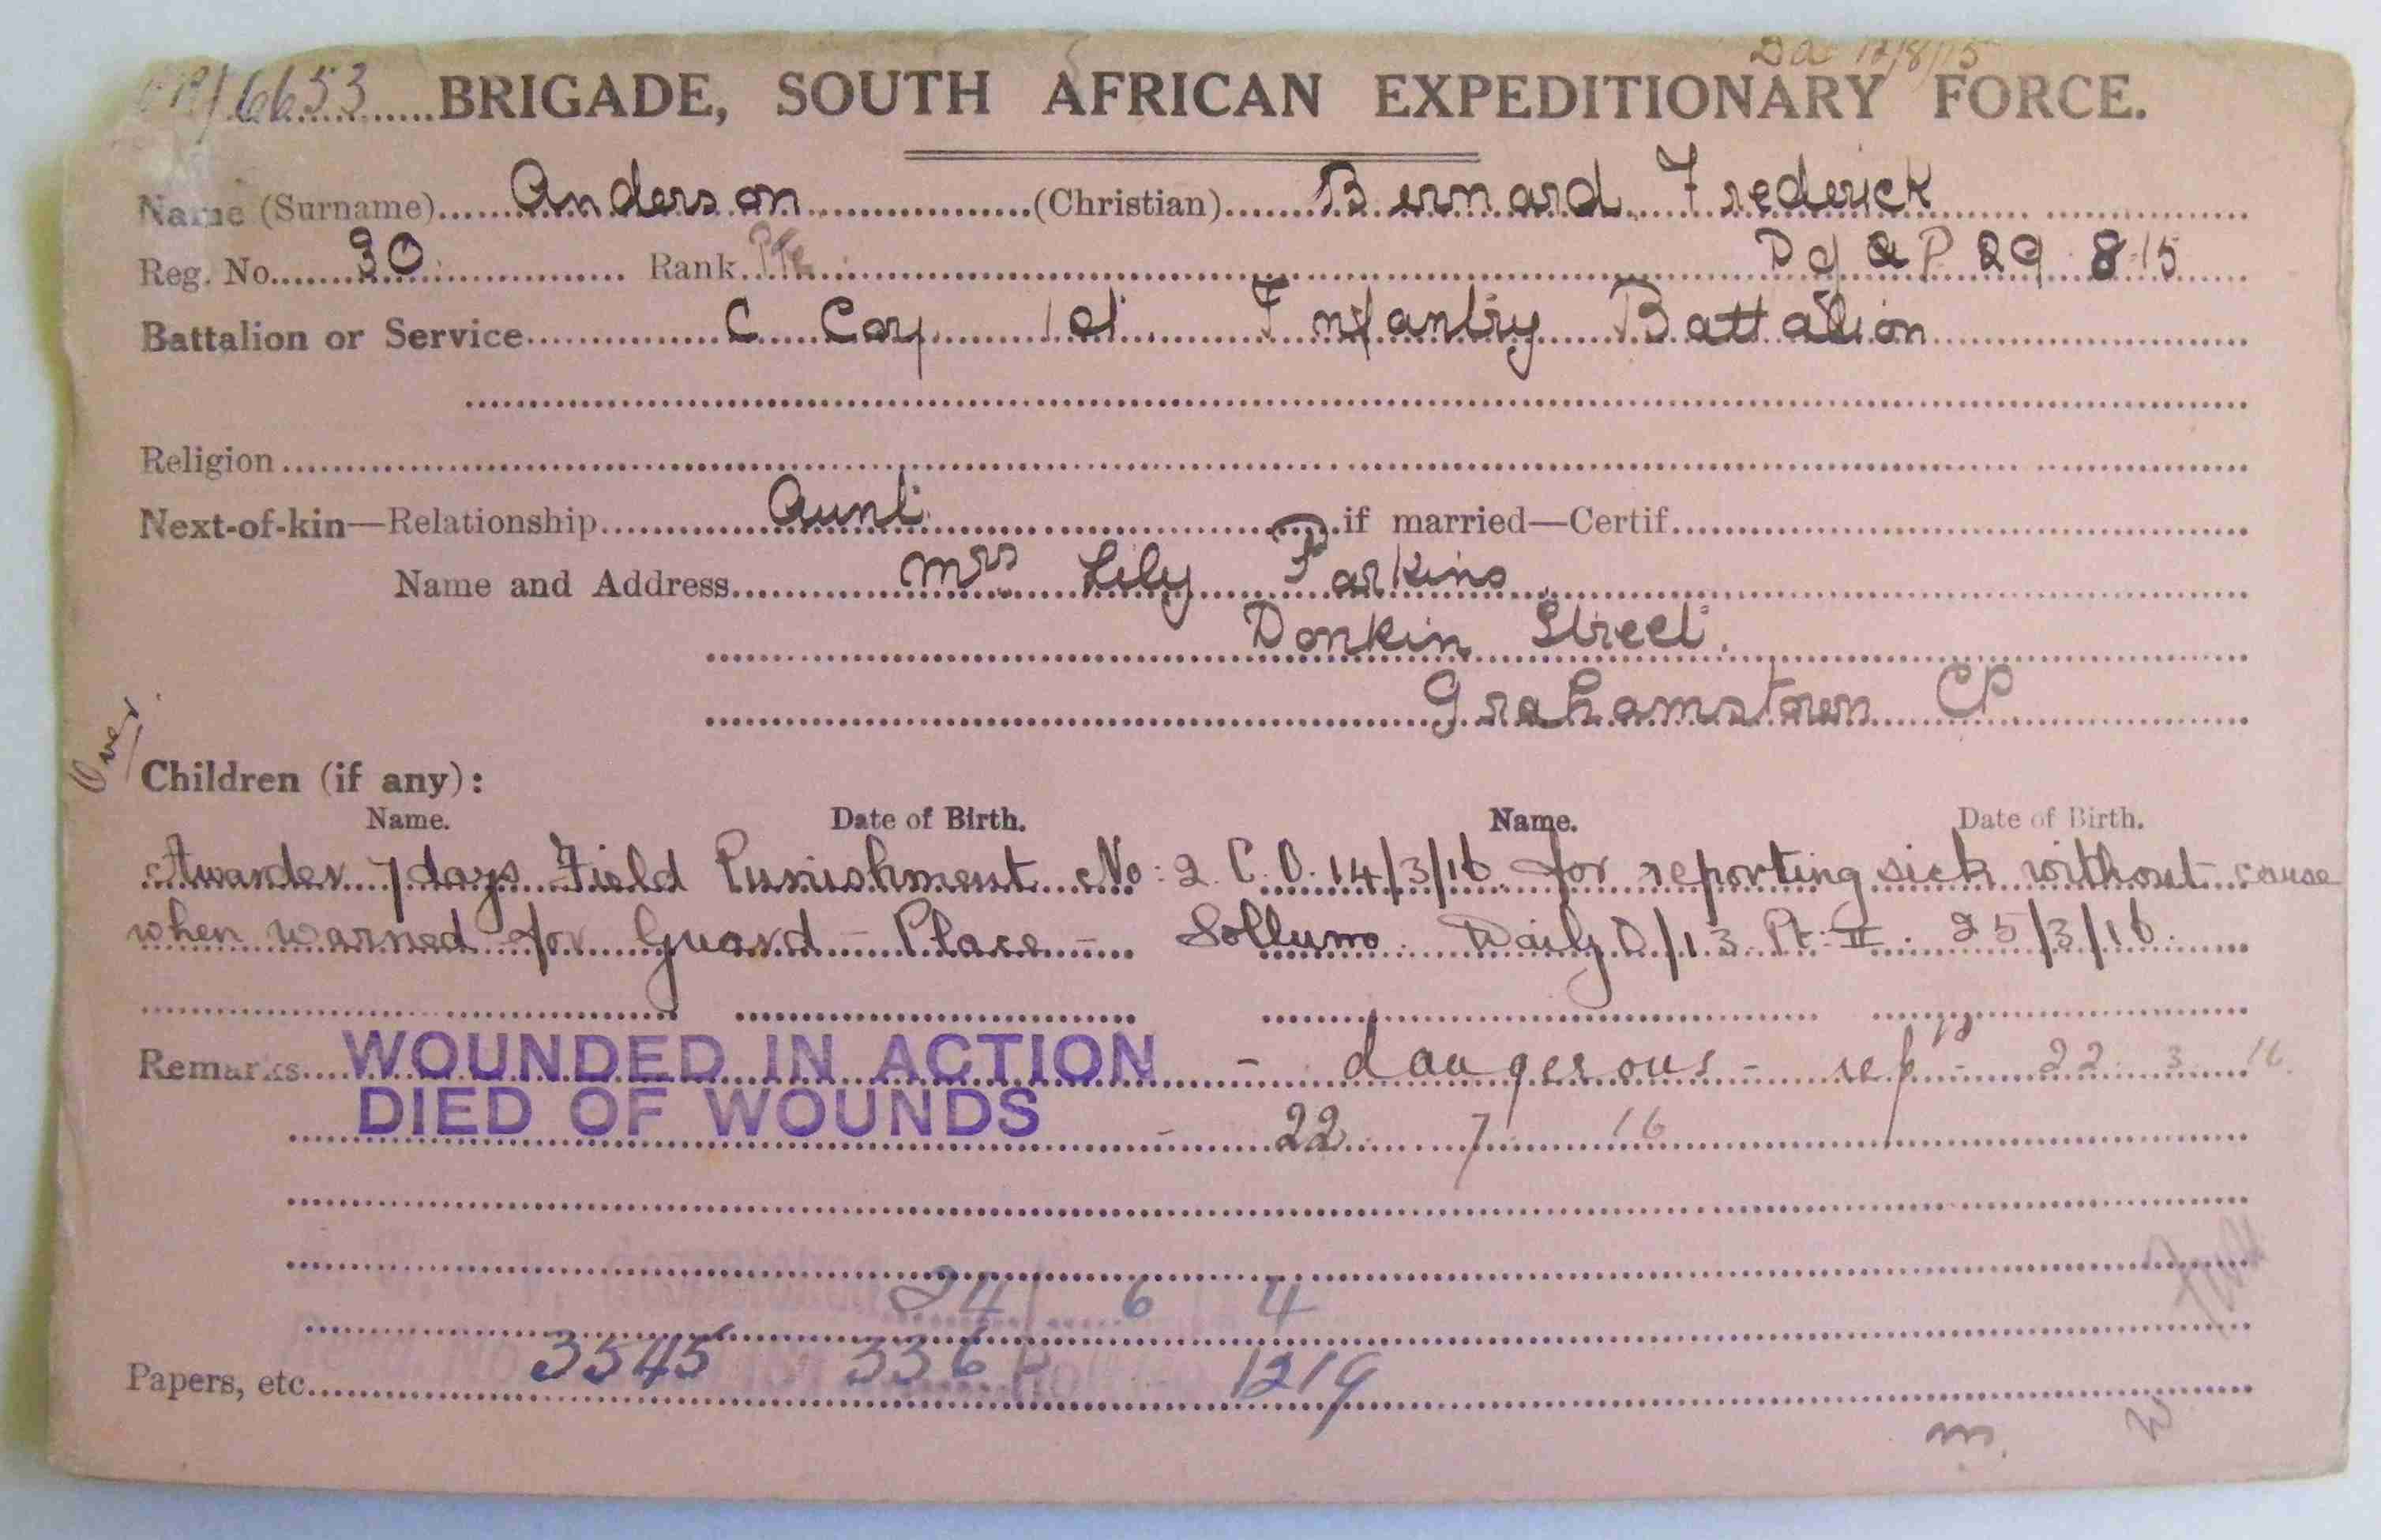 DA 12/8/15
6653 BRIGADE, SOUTH AFRICAN EXPEDITIONARY FORCE.
Name (Surname) Anderson (Christian) Bernard Frederick
Reg. No. 30 Rank Pte D of P 29 8-15
Battalion or Service C Coy 1st Infantry Battalion
Religion
Next-of-kin—Relationship Aunt if married—Certif.
Name and Address Mrs Lily Parkins
Donkin Street.
Grahamstown CP
Over
Children (if any):
Name. Date of Birth. Name. Date of Birth.
Awarded 7 days Field Punishment No: 2 C.O. 14/3/16 for reporting sick without cause
when warned for Guard - Place - Sollum Daily O/13 Pt: II. 25/3/16.
Remarks WOUNDED IN ACTION - dangerous - rep'd - 22 3 16.
DIED OF WOUNDS - 22 7 16
24/ 6 4
Papers, etc. 3545 336 1219
m. W